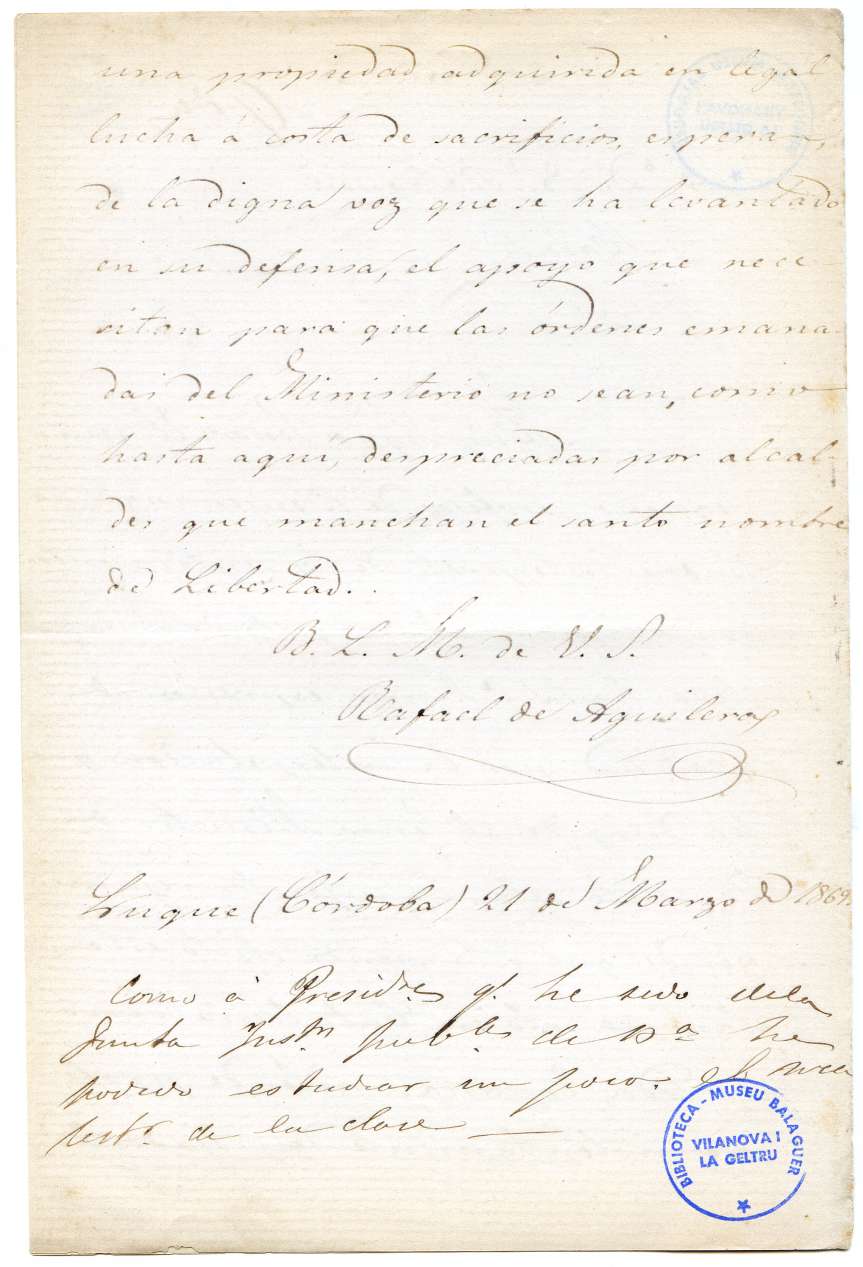 una propiedad adquirida en legal
lucha á costa de sacrificios, esperan,
de la digna voz que se ha levantado
en su defensa, el apoyo que nece-
sitan para que las órdenes emana-
das del Ministerio no sean, como
hasta aqui, despreciadas por alcal-
des que manchan el santo nombre
de Libertad.
B. L. M. de V. S.
Rafael de Aguilera
Luque (Córdoba) 21 de Marzo de 1869.
Como á Presidte q. he sido de la
Junta Instn de pa he
podido estudiar un poco el
de la clase
BIBLIOTECA - MUSEU BALAGUER
VILANOVA I
LA GELTRU